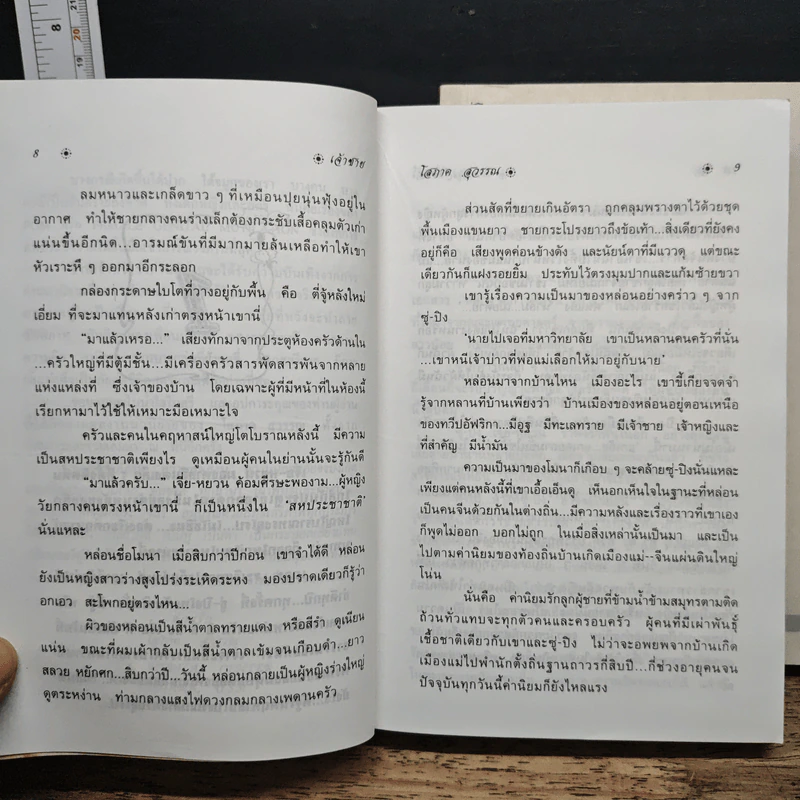 8
เจ้าชาย
ลมหนาวและเกล็ดขาว ๆ ที่เหมือนปุยนุ่นฟุ้งอยู่ใน
อากาศ ทำให้ชายกลางคนร่างเล็กต้องกระชับเสื้อคลุมตัวเก่า
แน่นขึ้นอีกนิด...อารมณ์ขันที่มีมากมายล้นเหลือทำให้เขา
หัวเราะหึ ๆ ออกมาอีกระลอก
กล่องกระดาษใบโตที่วางอยู่กับพื้น คือ ตี่จู้หลังใหม่
เอี่ยม ที่จะมาแทนหลังเก่าตรงหน้าเขานี่
“มาแล้วเหรอ...” เสียงทักมาจากประตูห้องครัวด้านใน
...ครัวใหญ่ที่มีตู้มีชั้น...มีเครื่องครัวสารพัดสารพันจากหลาย
แห่งแหล่งที่ ซึ่งเจ้าของบ้าน โดยเฉพาะผู้ที่มีหน้าที่ในห้องนี้
เรียกหามาไว้ใช้ให้เหมาะมือเหมาะใจ
ครัวและคนในคฤหาสน์ใหญ่โตโบราณหลังนี้ มีความ
เป็นสหประชาชาติเพียงไร ดูเหมือนผู้คนในย่านนั้นจะรู้กันดี
“มาแล้วครับ...” เจี่ย-หยวน ค้อมศีรษะพองาม...ผู้หญิง
วัยกลางคนตรงหน้าเขานี่ ก็เป็นหนึ่งใน ‘สหประชาชาติ’
นั่นแหละ
หล่อนชื่อโมนา เมื่อสิบกว่าปีก่อน เขาจำได้ดี หล่อน
ยังเป็นหญิงสาวร่างสูงโปร่งระเหิดระหง มองปราดเดียวก็รู้ว่า
อกเอว สะโพกอยู่ตรงไหน...
ผิวของหล่อนเป็นสีน้ำตาลทรายแดง หรือสีรำ ดูเนียน
แน่น ขณะที่ผมเผ้ากลับเป็นสีน้ำตาลเข้มจนเกือบดำ...ยาว
สลวย หยักศก...สิบกว่าปี...วันนี้ หล่อนกลายเป็นผู้หญิงร่างใหญ่
ดูตระหง่าน ท่ามกลางแสงไฟดวงกลมกลางเพดานครัว
โสภาค สุวรรณ
9
ส่วนสัดที่ขยายเกินอัตรา ถูกคลุมพรางตาไว้ด้วยชุด
พื้นเมืองแขนยาว ชายกระโปรงยาวถึงข้อเท้า...สิ่งเดียวที่ยังคง
อยู่ก็คือ เสียงพูดค่อนข้างดัง และนัยน์ตาที่มีแววดุ แต่ขณะ
เดียวกันก็แฝงรอยยิ้ม ประทับไว้ตรงมุมปากและแก้มซ้ายขวา
เขารู้เรื่องความเป็นมาของหล่อนอย่างคร่าว ๆ จาก
ซู่-ปิง
‘นายไปเจอที่มหาวิทยาลัย เขาเป็นหลานคนครัวที่นั่น
...เขาหนีเจ้าบ่าวที่พ่อแม่เลือกให้มาอยู่กับนาย’
หล่อนมาจากบ้านไหน เมืองอะไร เขาขี้เกียจจดจำ
รู้จากหลานที่บ้านเพียงว่า บ้านเมืองของหล่อนอยู่ตอนเหนือ
ของทวีปอัฟริกา...มีอูฐ มีทะเลทราย มีเจ้าชาย เจ้าหญิงและ
ที่สำคัญ มีน้ำมัน
ความเป็นมาของโมนาก็เกือบ ๆ จะคล้ายซู่-ปิงนั่นแหละ
เพียงแต่คนหลังนี้ที่เขาเอื้อเอ็นดู เห็นอกเห็นใจในฐานะที่หล่อน
เป็นคนจีนด้วยกันในต่างถิ่น...มีความหลังและเรื่องราวที่เขาเอง
ก็พูดไม่ออก บอกไม่ถูก ในเมื่อสิ่งเหล่านั้นเป็นมา และเป็น
ไปตามค่านิยมของท้องถิ่นบ้านเกิดเมืองแม่--จีนแผ่นดินใหญ่
โน่น
นั่นคือ ค่านิยมรักลูกผู้ชายที่ข้ามน้ำข้ามสมุทรตามติด
ถ้วนทั่วแทบจะทุกตัวคนและครอบครัว ผู้คนที่มีเผ่าพันธุ์
เชื้อชาติเดียวกับเขาและซู่-ปิง ไม่ว่าจะอพยพจากบ้านเกิด
เมืองแม่ไปพำนักตั้งถิ่นฐานถาวรกี่สิบปี...กี่ช่วงอายุคนจน
ปัจจุบันทุกวันนี้ค่านิยมก็ยังไหลแรง
8
21
20
19